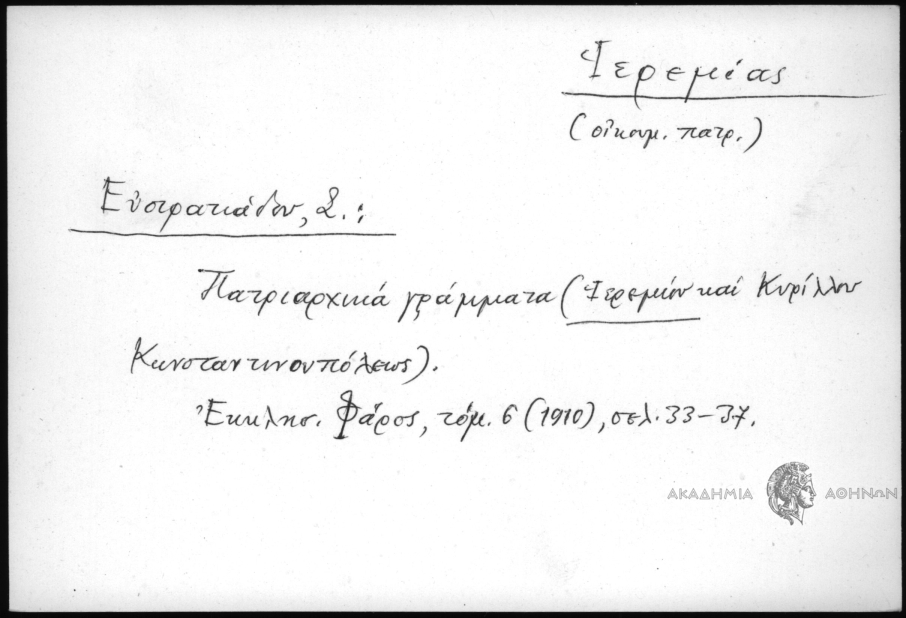 Ἱερεμίας
(οἰκουμ. πατρ.)
Εὐστρατιάδου, Σ.:
Πατριαρχικά γράμματα (Ἱερεμίου καί Κυρίλλου
Κωνσταντινουπόλεως).
Ἐκκλησ. Φάρος, τόμ. 6 (1910), σελ. 33-37.
ΑΚΑΔΗΜΙΑ ΑΘΗΝΩΝ